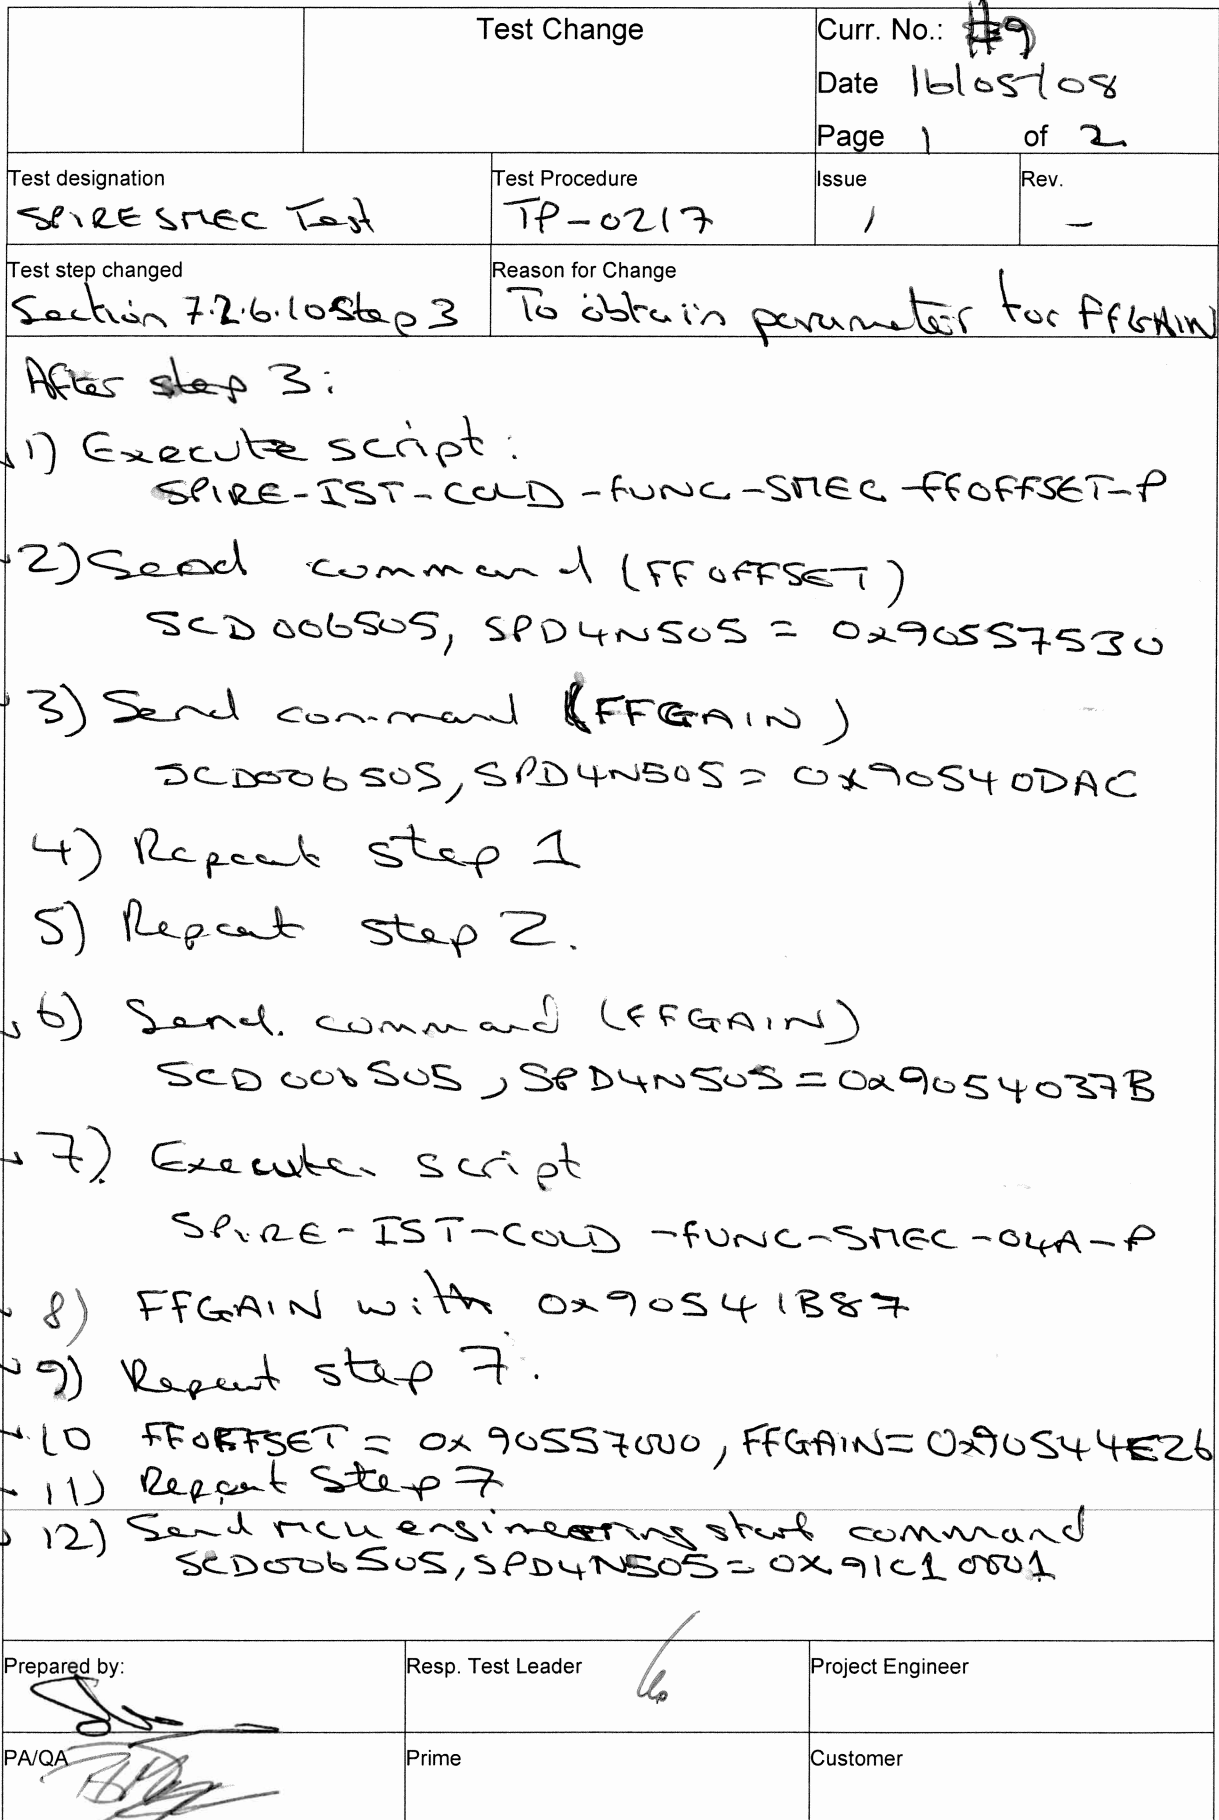 Test Change
Curr. No.: #9
Date 16/05/08
Page 1 of 2
Test designation
SPIRE SMEC Test
Test Procedure
TP-0217
Issue
1
Rev.
-
Test step changed
Section 7.2.6.10 Step 3
Reason for Change
To obtain parameter for FFGAIN
After step 3:
1) Execute script:
SPIRE-IST-COLD-FUNC-SMEC-FFOFFSET-P
2) Send command (FFOFFSET)
SCD006505, SPD4N505 = 0x90557530
3) Send command (FFGAIN)
SCD006505, SPD4N505 = 0x90540DAC
4) Repeat step 1
5) Repeat step 2.
6) Send. command (FFGAIN)
SCD006505, SPD4N505 = 0x9054037B
7) Execute script
SPIRE-IST-COLD-FUNC-SMEC-04A-P
8) FFGAIN with 0x90541B87
9) Repeat step 7.
10 FFOFFSET = 0x90557000, FFGAIN = 0x90544E26
11) Repeat Step 7
12) Send MCU engineering start command
SCD006505, SPD4N505 = 0x91C10001
Prepared by:
Resp. Test Leader
Project Engineer
PA/QA
Prime
Customer